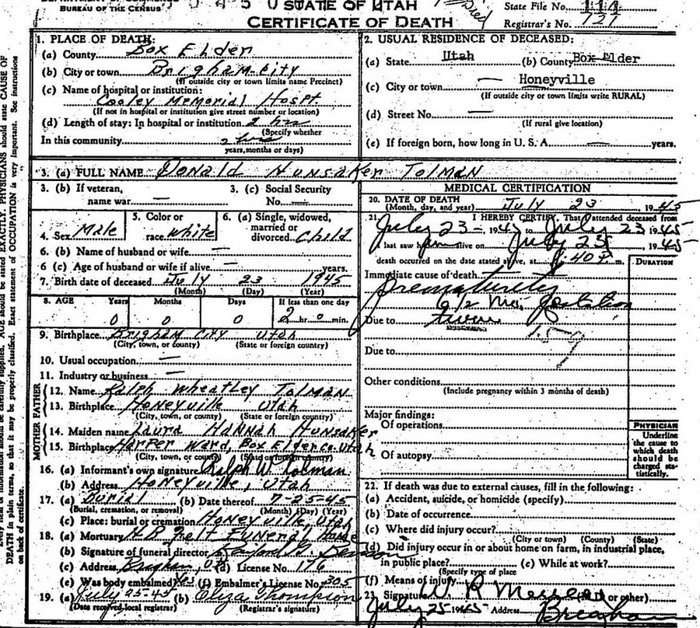 BUREAU OF THE CENSUS
STATE OF UTAH
CERTIFICATE OF DEATH
State File No. 114
Registrar's No. 737
1. PLACE OF DEATH:
(a) County Box Elder
(b) City or town Brigham City
(If outside city or town limits name Precinct)
(c) Name of hospital or institution:
Cooley Memorial Hospt
(If not in hospital or institution give street number or location)
(d) Length of stay: In hospital or institution 2 hrs
(Specify whether
In this community 2 hrs
years, months or days)
2. USUAL RESIDENCE OF DECEASED:
(a) State Utah (b) County Box Elder
(c) City or town Honeyville
(If outside city or town limits write RURAL)
(d) Street No. —
(If rural give location)
(e) If foreign born, how long in U. S. A. — years.
3. (a) FULL NAME Donald Hunsaker Tolman
3. (b) If veteran, name war —
3. (c) Social Security No. —
4. Sex Male
5. Color or race White
6. (a) Single, widowed, married or divorced Child
6. (b) Name of husband or wife —
6. (c) Age of husband or wife if alive — years.
7. Birth date of deceased July 23 1945
(Month) (Day) (Year)
8. AGE Years Months Days If less than one day
0 0 0 2 hr. 0 min.
9. Birthplace Brigham City Utah
(City, town, or county) (State or foreign country)
10. Usual occupation —
11. Industry or business —
FATHER
12. Name Ralph Wheatley Tolman
13. Birthplace Honeyville Utah
(City, town, or county) (State or foreign country)
MOTHER
14. Maiden name Laura Hannah Hunsaker
15. Birthplace Harper Ward, Box Elder Co. Utah
(City, town, or county) (State or foreign country)
16. (a) Informant's own signature Ralph W Tolman
(b) Address Honeyville, Utah
17. (a) Burial (b) Date thereof 7-25-45
(Burial, cremation, or removal) (Month) (Day) (Year)
(c) Place: burial or cremation Honeyville, Utah
18. (a) Mortuary Felt Funeral Home
(b) Signature of funeral director
(c) Address Brigham, Uta (d) License No. 176
(e) Was body embalmed Yes (f) Embalmer's License No. 305
19. (a) July 25-45 (b) Eliza Thompson
(Date received local registrar) (Registrar's signature)
MEDICAL CERTIFICATION
20. DATE OF DEATH
(Month, day, and year) July 23 1945
21. I HEREBY CERTIFY, That I attended deceased from
July 23 1945 to July 23 1945
last saw him alive on July 23 1945
death occurred on the date stated above, at :40 P. m.
DURATION
Immediate cause of death
Prematurity
6 1/2 Mo. gestation
Due to twin
159
Due to
Other conditions
(Include pregnancy within 3 months of death)
Major findings:
Of operations
Of autopsy
PHYSICIAN
Underline the cause to which death should be charged statistically.
22. If death was due to external causes, fill in the following:
(a) Accident, suicide, or homicide (specify)
(b) Date of occurrence
(c) Where did injury occur?
(City or town) (County) (State)
(d) Did injury occur in or about home on farm, in industrial place, in public place? (e) While at work?
(Specify type of place)
(f) Means of injury
23. Signature
July 25 1945 Address Brigham